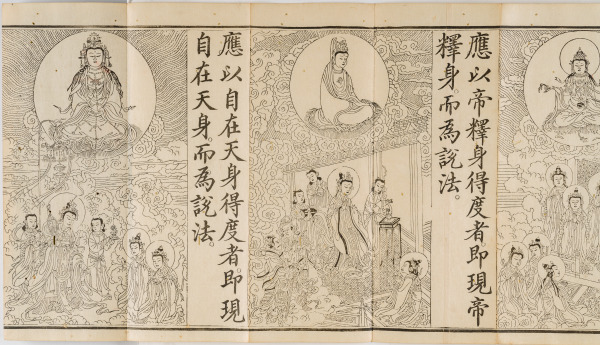 應以帝釋身得度者。即現帝
釋身。而為說法。
應以自在天身得度者。即現
自在天身而為說法。